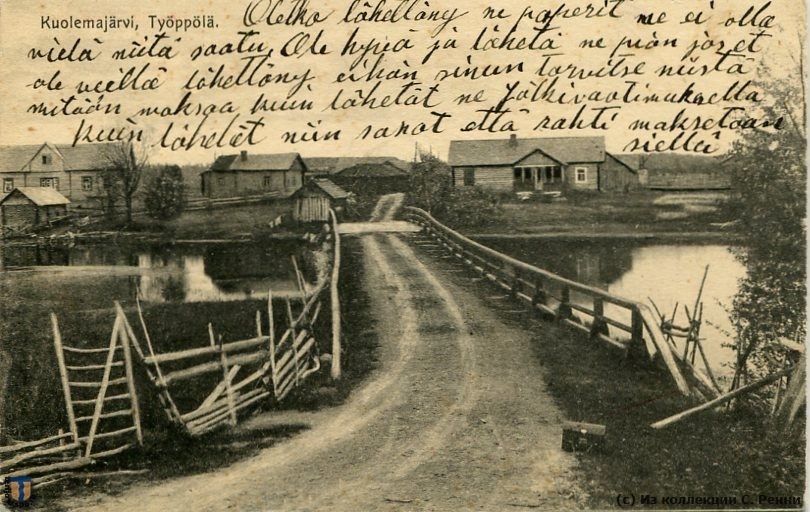 Kuolemajärvi, Työppölä.
Oletko lähettäny ne paperit me ei olla
vielä niitä saatu. Ole hyvä ja läheta ne pian jos et
ole viellä lähettäny eihän sinun tarvitse niistä
mitään maksaa kuin lähetät ne jälkivaatimuksella
kuin lähetät niin sanot että rahti maksetaan
siellä
(c) Из коллекции С. Ренни